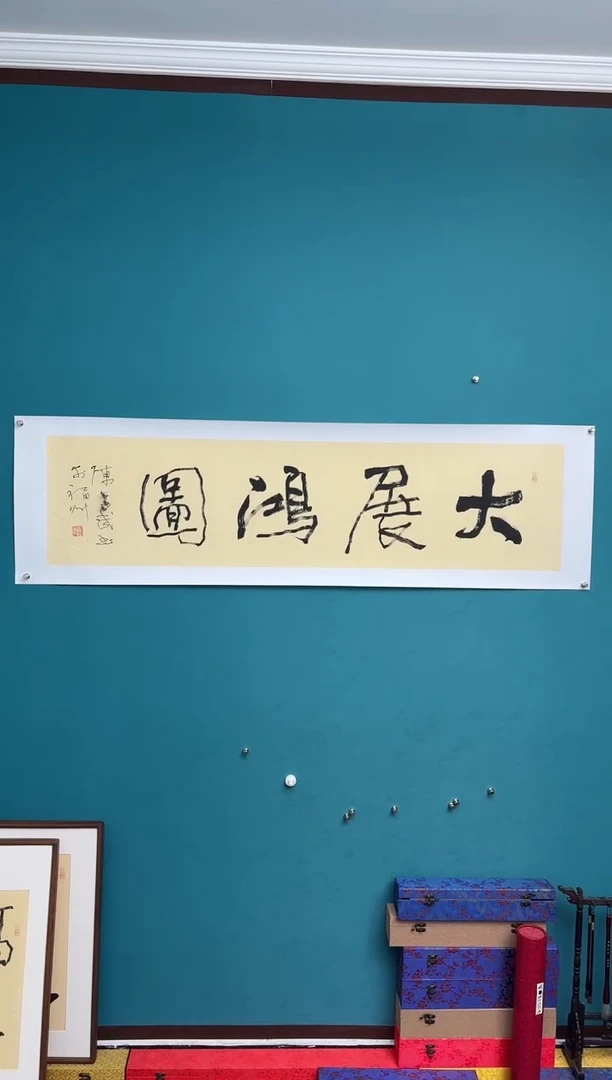 大展鴻圖
陳
於福州